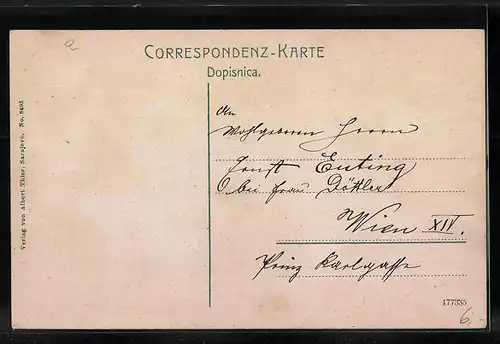 a
CORRESPONDENZ-KARTE
Dopisnica.
An
Wohlgeboren Herrn
Ernst Euting
bei Frau Döttler
Wien XIV.
Prinz Karlgasse
Verlag von Albert Thier, Sarajevo. No.
177335
6,-